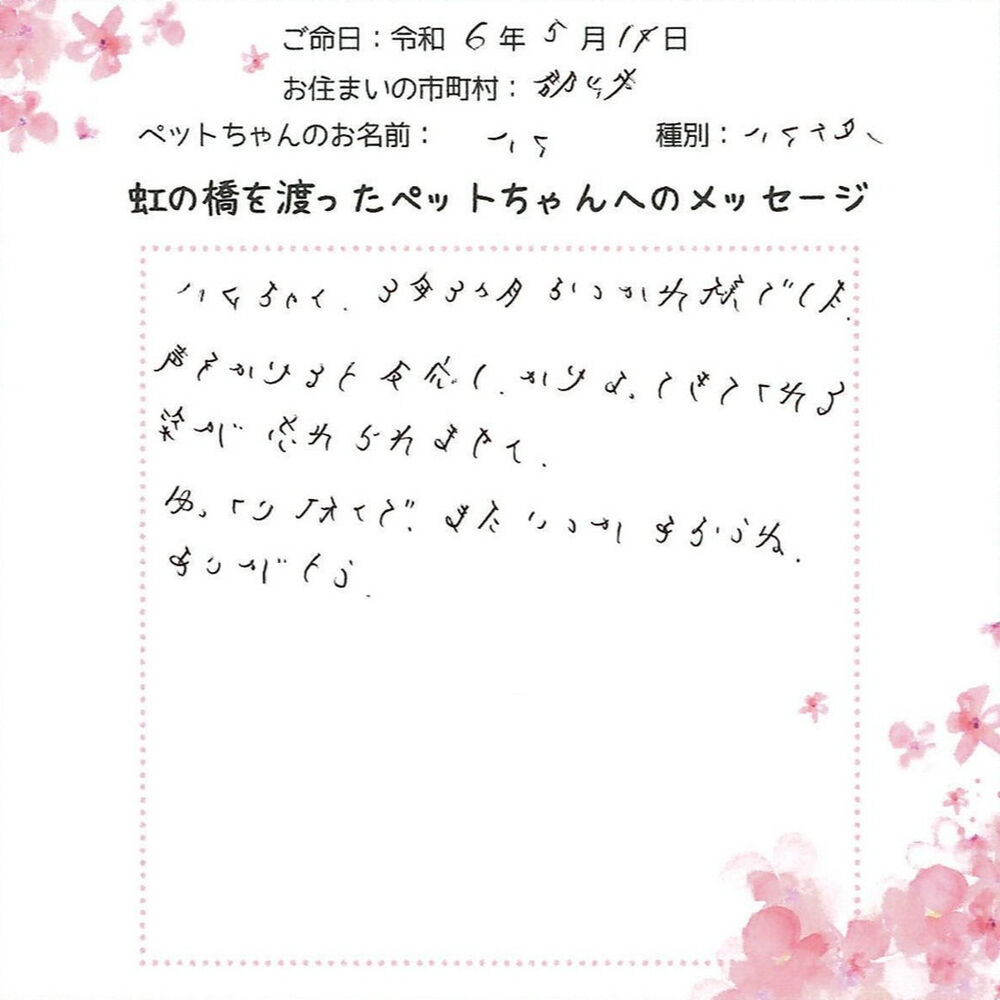 ご命日：令和 6 年 5 月 17 日
お住まいの市町村：
ペットちゃんのお名前： ハム 種別：ハムスター
虹の橋を渡ったペットちゃんへのメッセージ
ハムちゃん、3年3ヶ月 ありがとう
声をかけると反応し、かけよってきてくれる
姿が忘れられません。
ゆっくり休んで、またいつか会おうね。
ありがとう。